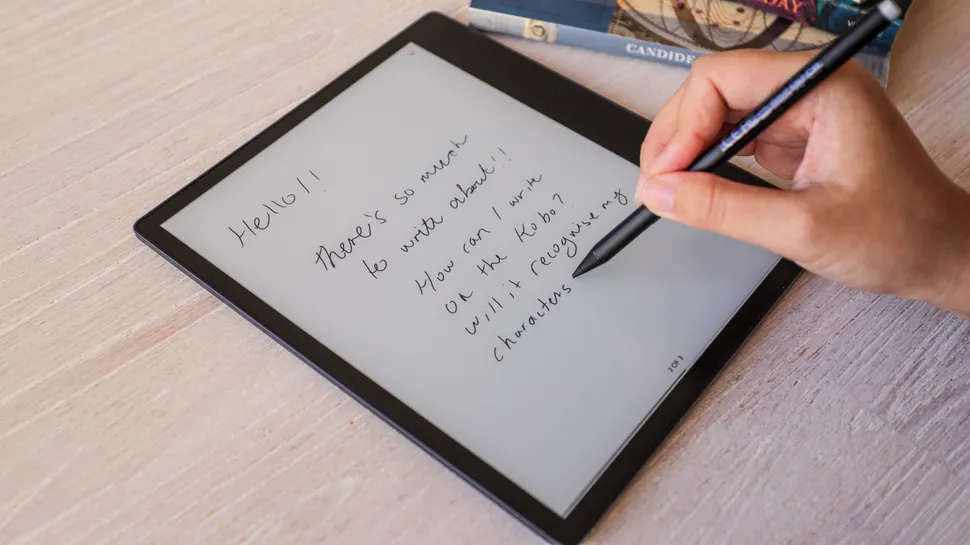 CANDIDE
DAY
Hello!!
There's so much
to write about!!
How can I write
on the Kobo?
will it recognise my
characters
2 OF 3